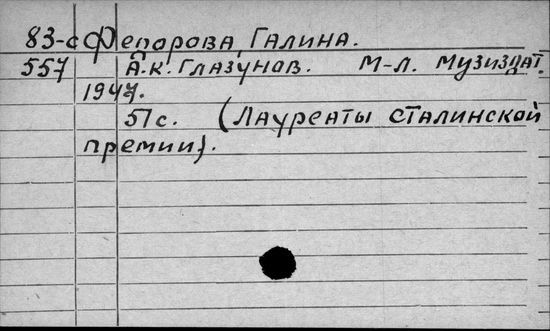 83-с Федорова, Галина.
557 А.К. Глазунов. М-Л. Музиздат.
1947.
51с. (Лауреаты сталинской
премии).